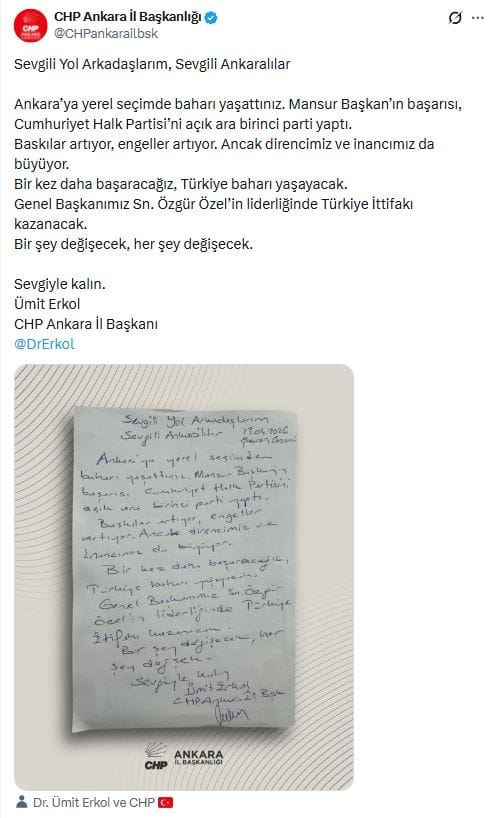 CHP Ankara İl Başkanlığı
@CHPankarailbsk
Sevgili Yol Arkadaşlarım, Sevgili Ankaralılar
Ankara’ya yerel seçimde baharı yaşattınız. Mansur Başkan’ın başarısı,
Cumhuriyet Halk Partisi’ni açık ara birinci parti yaptı.
Baskılar artıyor, engeller artıyor. Ancak direncimiz ve inancımız da
büyüyor.
Bir kez daha başaracağız, Türkiye baharı yaşayacak.
Genel Başkanımız Sn. Özgür Özel’in liderliğinde Türkiye İttifakı
kazanacak.
Bir şey değişecek, her şey değişecek.
Sevgiyle kalın.
Ümit Erkol
CHP Ankara İl Başkanı
@DrErkol
Sevgili Yol Arkadaşlarım
Sevgili Ankaralılar
Ankara'ya yerel seçimde
baharı yaşattınız. Mansur Başkan'ın
başarısı, Cumhuriyet Halk Partisi'ni
açık ara birinci parti yaptı.
Baskılar artıyor, engeller
artıyor. Ancak direncimiz ve
inancımız da büyüyor.
Bir kez daha başaracağız,
Türkiye baharı yaşayacak.
Genel Başkanımız Sn. Özgür
Özel'in liderliğinde Türkiye
İttifakı kazanacak.
Bir şey değişecek, her
şey değişecek.
Sevgiyle kalın
Ümit Erkol
CHP Ankara İl Bşk
CHP
ANKARA
İL BAŞKANLIĞI
Dr. Ümit Erkol ve CHP